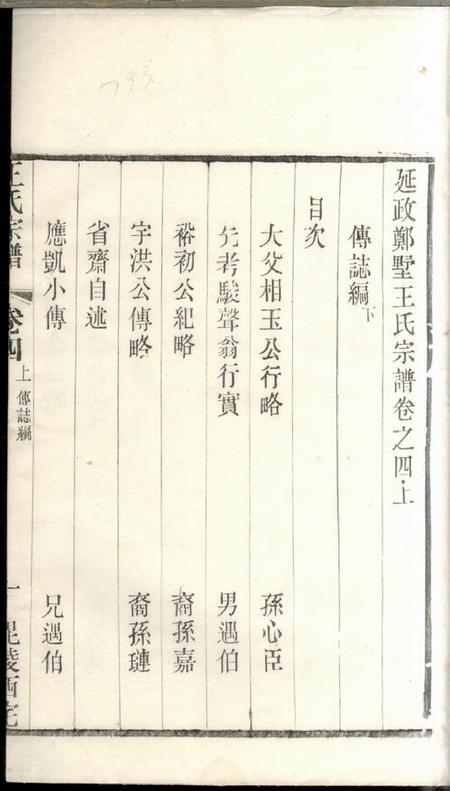 793
延政鄭墅王氏宗譜卷之四上
傳誌編下
目次
大父相玉公行略 孫心臣
先考駿聲翁行實 男遇伯
裕初公紀略 裔孫嘉
宇洪公傳略 裔孫璉
省齋自述
應凱小傳 兄遇伯
王氏宗譜 卷四上 傳誌編 一 毘陵西宅